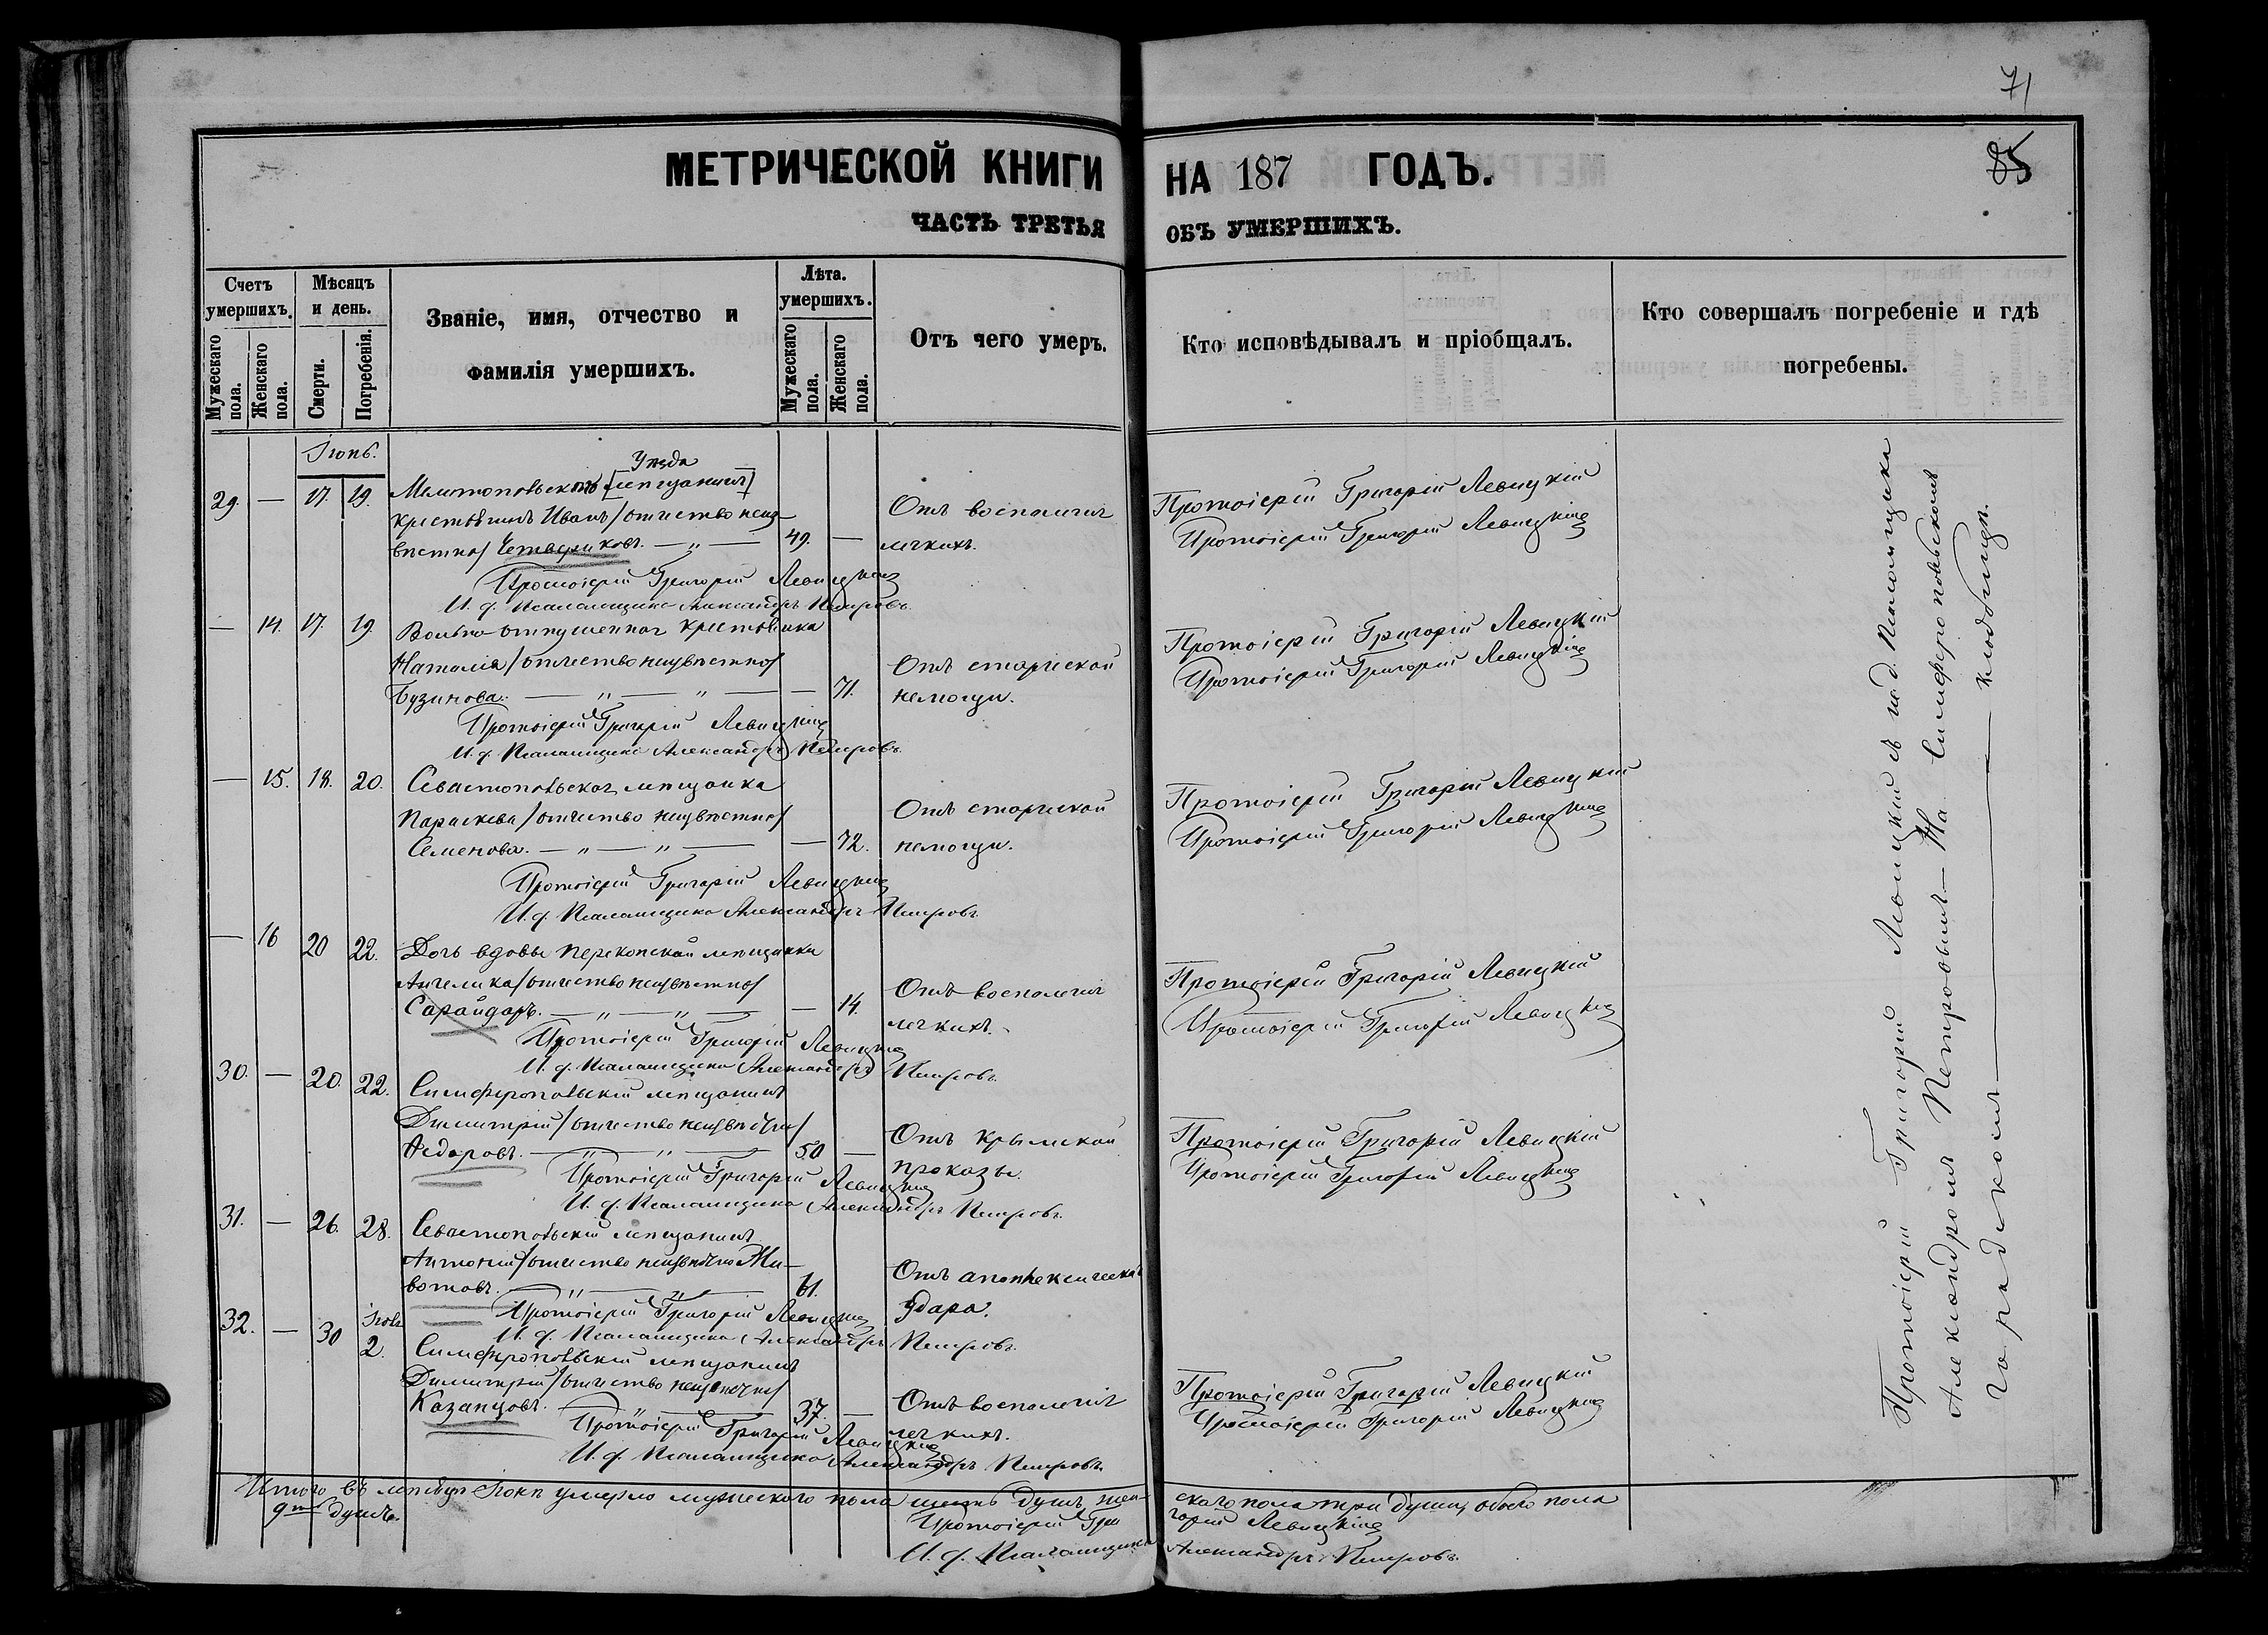 71
85
МЕТРИЧЕСКОЙ КНИГИ НА 187 ГОДЪ.
ЧАСТЬ ТРЕТЬЯ ОБЪ УМЕРШИХЪ.
Счетъ умершихъ.
Мужескаго пола.
Женскаго пола.
Мѣсяцъ и день.
Смерти.
Погребенія.
Званіе, имя, отчество и
фамилія умершихъ.
Лѣта. умершихъ.
Мужескаго пола.
Женскаго пола.
Отъ чего умеръ.
Кто исповѣдывалъ и пріобщалъ.
Кто совершалъ погребеніе и гдѣ
погребены.
Іюнь.
Уѣзда
29. — 17. 19. Мелитопольскаго [мѣщанинъ]
крестьянинъ Иванъ /отчество неиз-
вѣстно/ Четвериковъ. — „ — 49. —
Отъ воспаленія
легкихъ.
Протоіерей Григорій Левицкій
Протоіерей Григорій Левицкій
Протоіерей Григорій Левицкій
И. д. Псаломщика Александръ Петровъ.
— 14. 17. 19. Вольно отпущенная крестьянка
Наталія /отчество неизвѣстно/
Бузинова. — „ — „ — — 71.
Отъ старческой
немощи.
Протоіерей Григорій Левицкій
Протоіерей Григорій Левицкій
Протоіерей Григорій Левицкій
И. д. Псаломщика Александръ Петровъ.
— 15. 18. 20. Севастопольская мѣщанка
Параскева /отчество неизвѣстно/
Семенова. — „ — „ — — 72.
Отъ старческой
немощи.
Протоіерей Григорій Левицкій
Протоіерей Григорій Левицкій
Протоіерей Григорій Левицкій
И. д. Псаломщика Александръ Петровъ.
— 16 20 22. Дочь вдовы Перекопской мѣщанки
Ангелика /отчество неизвѣстно/
Сарайдаръ. — „ — „ — — 14.
Отъ воспаленія
легкихъ.
Протоіерей Григорій Левицкій
Протоіерей Григорій Левицкій
Протоіерей Григорій Левицкій
И. д. Псаломщика Александръ Петровъ.
30. — 20. 22. Симферопольскій мѣщанинъ
Димитрій /отчество неизвѣстно/
Ѳедоровъ. — „ — „ — 50 —
Отъ крымской
проказы.
Протоіерей Григорій Левицкій
Протоіерей Григорій Левицкій
Протоіерей Григорій Левицкій
И. д. Псаломщика Александръ Петровъ.
31. — 26. 28. Севастопольскій мѣщанинъ
Антоній /отчество неизвѣстно Жи-
вотовъ. — „ — „ — 61.
Отъ апоплексическаго
удара.
Протоіерей Григорій Левицкій
И. д. Псаломщика Александръ Петровъ.
32. — 30 Іюль 2. Симферопольскій мѣщанинъ
Димитрій /отчество неизвѣстно/
Казанцовъ. — „ — 37. —
Отъ воспаленія
легкихъ.
Протоіерей Григорій Левицкій
Протоіерей Григорій Левицкій
Протоіерей Григорій Левицкій
И. д. Псаломщика Александръ Петровъ.
Протоіерей Григорій Левицкій съ и. д. Псаломщика
Александромъ Петровымъ — На Симферопольскомъ
городскомъ — кладбищѣ.
Итого въ мѣсяцѣ Іюнѣ умерло мужескаго пола шесть душъ, жен-скаго пола три души, обоего пола
9ть душъ.
Протоіерей Григорій Левицкій
И. д. Псаломщика Александръ Петровъ.